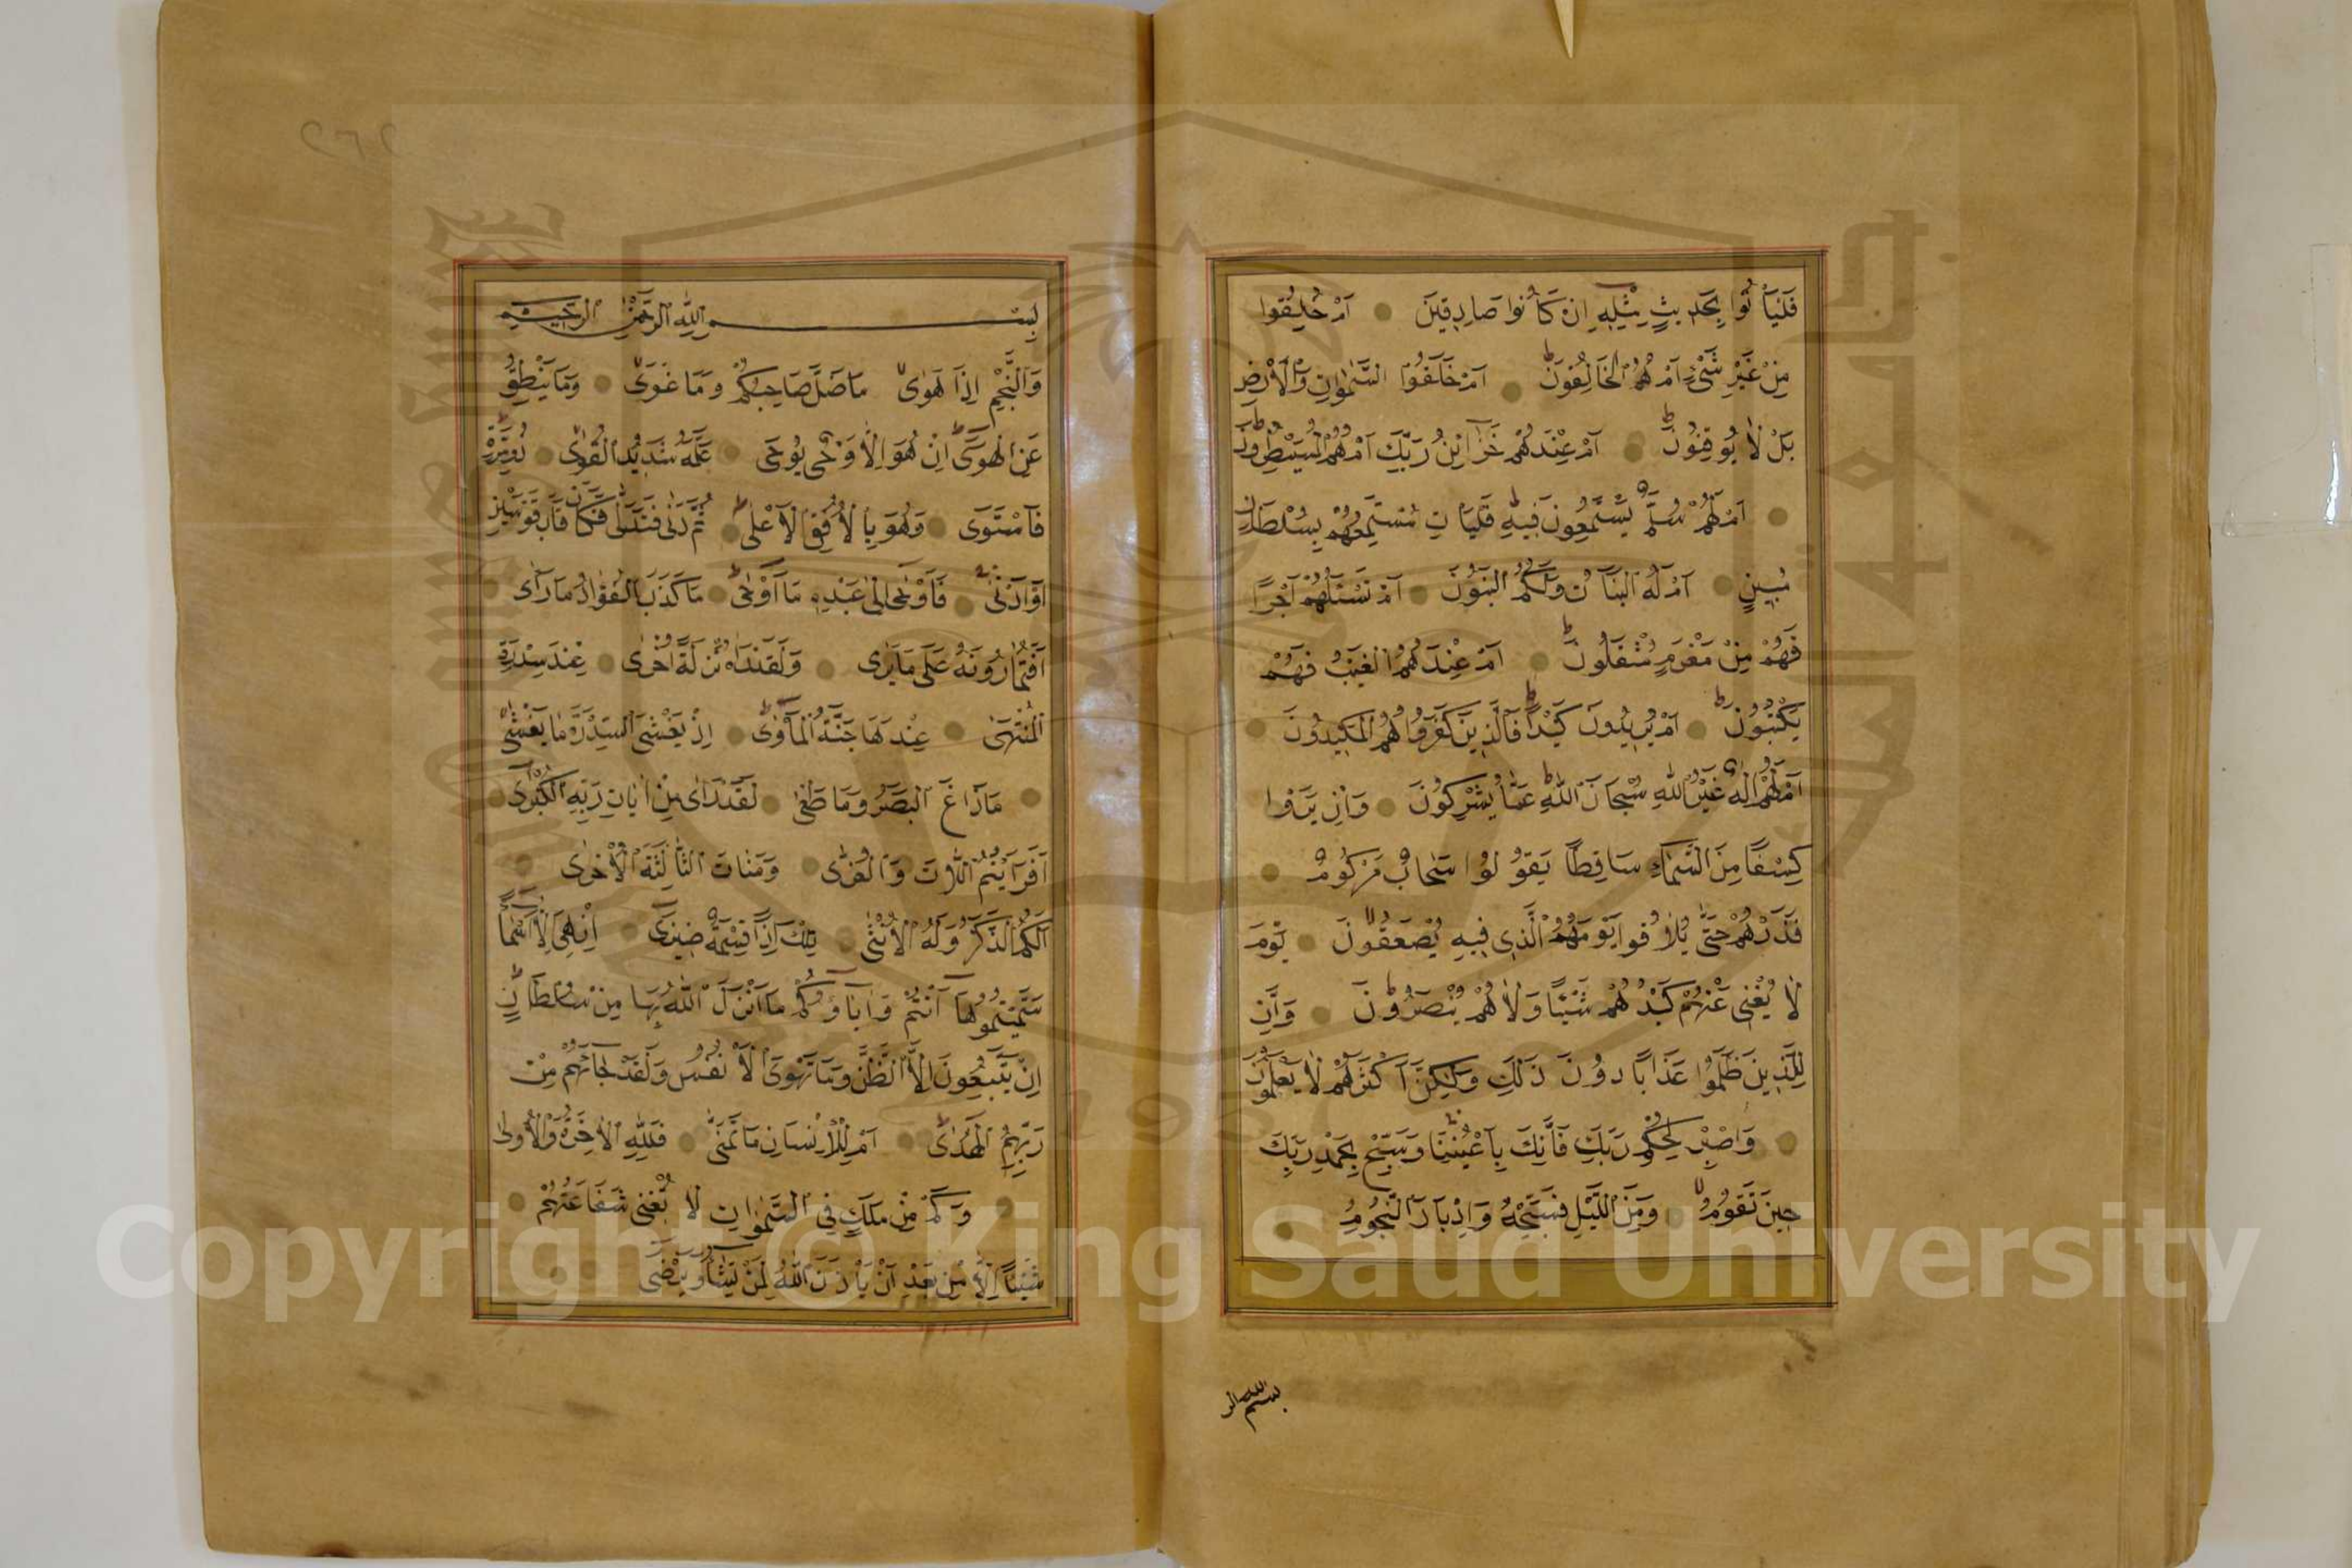 فَلْيَأْتُوا بِحَدِيثٍ مِثْلِهِ اِنْ كَانُوا صَادِقِينَ اَمْ خُلِقُوا
مِنْ غَيْرِ شَيْءٍ اَمْ هُمُ الْخَالِقُونَ اَمْ خَلَقُوا السَّمٰوَاتِ وَالْاَرْضَ
بَلْ لَا يُوقِنُونَ اَمْ عِنْدَهُمْ خَزَآئِنُ رَبِّكَ اَمْ هُمُ الْمُسَيْطِرُونَ
اَمْ لَهُمْ سُلَّمٌ يَسْتَمِعُونَ فِيهِ فَلْيَأْتِ مُسْتَمِعُهُمْ بِسُلْطَانٍ
مُبِينٍ اَمْ لَهُ الْبَنَاتُ وَلَكُمُ الْبَنُونَ اَمْ تَسْئَلُهُمْ اَجْرًا
فَهُمْ مِنْ مَغْرَمٍ مُثْقَلُونَ اَمْ عِنْدَهُمُ الْغَيْبُ فَهُمْ
يَكْتُبُونَ اَمْ يُرِيدُونَ كَيْدًا فَالَّذِينَ كَفَرُوا هُمُ الْمَكِيدُونَ
اَمْ لَهُمْ اِلٰهٌ غَيْرُ اللّٰهِ سُبْحَانَ اللّٰهِ عَمَّا يُشْرِكُونَ وَاِنْ يَرَوْا
كِسْفًا مِنَ السَّمَآءِ سَاقِطًا يَقُولُوا سَحَابٌ مَرْكُومٌ
فَذَرْهُمْ حَتّٰى يُلَاقُوا يَوْمَهُمُ الَّذِي فِيهِ يُصْعَقُونَ يَوْمَ
لَا يُغْنِي عَنْهُمْ كَيْدُهُمْ شَيْئًا وَلَا هُمْ يُنْصَرُونَ وَاِنَّ
لِلَّذِينَ ظَلَمُوا عَذَابًا دُونَ ذٰلِكَ وَلٰكِنَّ اَكْثَرَهُمْ لَا يَعْلَمُونَ
وَاصْبِرْ لِحُكْمِ رَبِّكَ فَاِنَّكَ بِاَعْيُنِنَا وَسَبِّحْ بِحَمْدِ رَبِّكَ
حِينَ تَقُومُ وَمِنَ اللَّيْلِ فَسَبِّحْهُ وَاِدْبَارَ النُّجُومِ
بسم الله الر
٢٦٢
بِسْمِ اللّٰهِ الرَّحْمٰنِ الرَّحِيمِ
وَالنَّجْمِ اِذَا هَوٰى مَا ضَلَّ صَاحِبُكُمْ وَمَا غَوٰى وَمَا يَنْطِقُ
عَنِ الْهَوٰى اِنْ هُوَ اِلَّا وَحْيٌ يُوحٰى عَلَّمَهُ شَدِيدُ الْقُوٰى ذُو مِرَّةٍ
فَاسْتَوٰى وَهُوَ بِالْاُفُقِ الْاَعْلٰى ثُمَّ دَنٰى فَتَدَلّٰى فَكَانَ قَابَ قَوْسَيْنِ
اَوْ اَدْنٰى فَاَوْحٰى اِلٰى عَبْدِهِ مَا اَوْحٰى مَا كَذَبَ الْفُؤَادُ مَا رَاٰى
اَفَتُمَارُونَهُ عَلٰى مَا يَرٰى وَلَقَدْ رَاٰهُ نَزْلَةً اُخْرٰى عِنْدَ سِدْرَةِ
الْمُنْتَهٰى عِنْدَهَا جَنَّةُ الْمَاْوٰى اِذْ يَغْشَى السِّدْرَةَ مَا يَغْشٰى
مَا زَاغَ الْبَصَرُ وَمَا طَغٰى لَقَدْ رَاٰى مِنْ اٰيَاتِ رَبِّهِ الْكُبْرٰى
اَفَرَاَيْتُمُ اللَّاتَ وَالْعُزّٰى وَمَنَاتَ الثَّالِثَةَ الْاُخْرٰى
اَلَكُمُ الذَّكَرُ وَلَهُ الْاُنْثٰى تِلْكَ اِذًا قِسْمَةٌ ضِيزٰى اِنْ هِيَ اِلَّا اَسْمَآءٌ
سَمَّيْتُمُوهَا اَنْتُمْ وَاٰبَآؤُكُمْ مَا اَنْزَلَ اللّٰهُ بِهَا مِنْ سُلْطَانٍ
اِنْ يَتَّبِعُونَ اِلَّا الظَّنَّ وَمَا تَهْوَى الْاَنْفُسُ وَلَقَدْ جَآءَهُمْ مِنْ
رَبِّهِمُ الْهُدٰى اَمْ لِلْاِنْسَانِ مَا تَمَنّٰى فَلِلّٰهِ الْاٰخِرَةُ وَالْاُولٰى
وَكَمْ مِنْ مَلَكٍ فِي السَّمٰوَاتِ لَا تُغْنِي شَفَاعَتُهُمْ
شَيْئًا اِلَّا مِنْ بَعْدِ اَنْ يَاْذَنَ اللّٰهُ لِمَنْ يَشَآءُ وَيَرْضٰى
Copyright © King Saud University